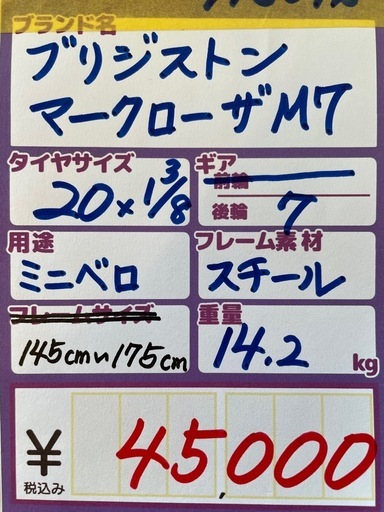 ブランド名
ブリジストン
マークローザM7
タイヤサイズ
20×1 3/8
ギア
前輪
後輪 7
用途
ミニベロ
フレーム素材
スチール
フレームサイズ
145cm〜175cm
重量
14.2 kg
¥ 45,000
税込み